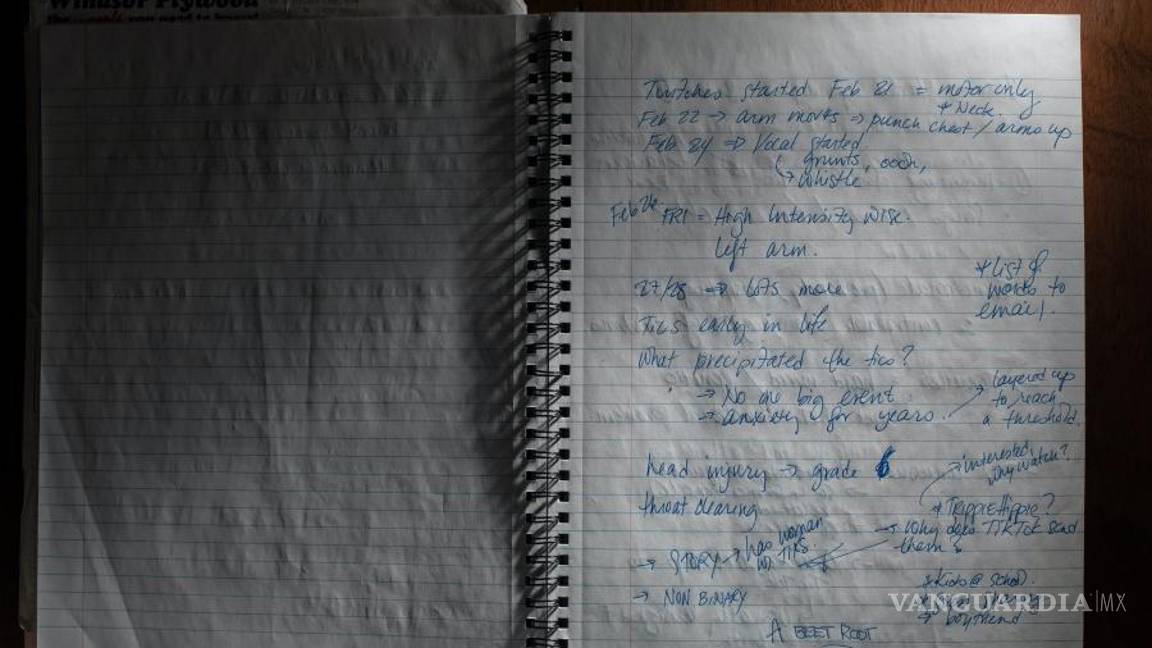 Windsor Plywood
Twitches started Feb 21 = motor only
* Neck.
Feb 22 → arm movts ⇒ punch chest / arms up
Feb 24 ⇒ Vocal started
↳ grunts, oooh,
whistle
Feb 26 FRI = High Intensity
left arm.
27/28 ⇒ lots more
* List of
words to
email.
Tics early in life
What precipitated the tics?
→ No one big event
→ anxiety for years.
→ layered up
to reach
a threshold.
head injury → grade 6
→ interested,
why watch?
throat clearing
* TrippieHippie?
→ Why does TikTok send
them
→ STORY → has woman
w. TIKS.
→ NON BINARY
* Kids @ school.
→ boyfriend
A BEET ROOT
VANGUARDIA|MX